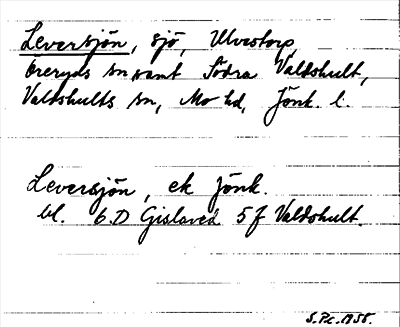 Leversjön, sjö, Ulvestorp,
Öreryds sn samt Södra Valdshult,
Valdshults sn, Mo hd, Jönk. l.
Leversjön, ek Jönk.
bl. 6D Gislaved 5f Valdshult.
S.Pc.1955.